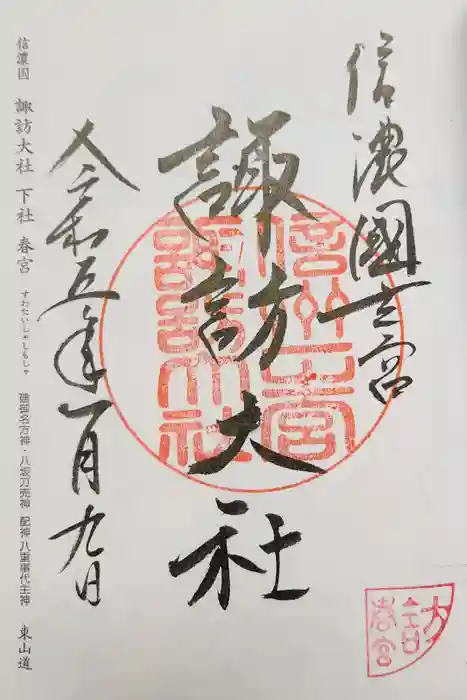 信濃國一之宮
諏訪大社
令和五年一月九日
信濃国 諏訪大社 下社 春宮 すわたいしゃしもしゃ 建御名方神・八坂刀売神 配神 八重事代主神 東山道
信州一之宮
諏訪大社
春宮